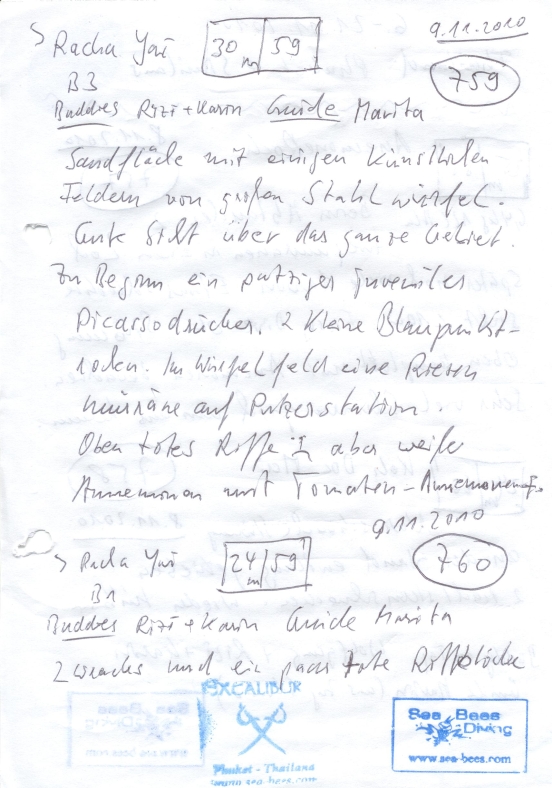 Racha Yai 30 m 59 9.11.2010
B3 759
Buddies Rizi + Karin Guide Marita
Sandfläche mit einigen künstlichen
Feldern von großen Stahlwürfel.
Gute Sicht über das ganze Gebiet.
Zu Beginn ein putziger juveniler
Picassodrücker, 2 kleine Blaupunkt-
rochen. Im Würfelfeld eine Riesen
muräne auf Putzerstation.
Oben totes Riff aber weiße
Annemonen mit Tomaten-Annemonenf.
9.11.2010
Racha Yai 24 m 59 760
B1
Buddies Rizi + Karin Guide Marita
2 wracks und ein paar tote Riffblöcke
EXCALIBUR
Phuket - Thailand
www.sea-bees.com
Sea Bees
Diving
www.sea-bees.com